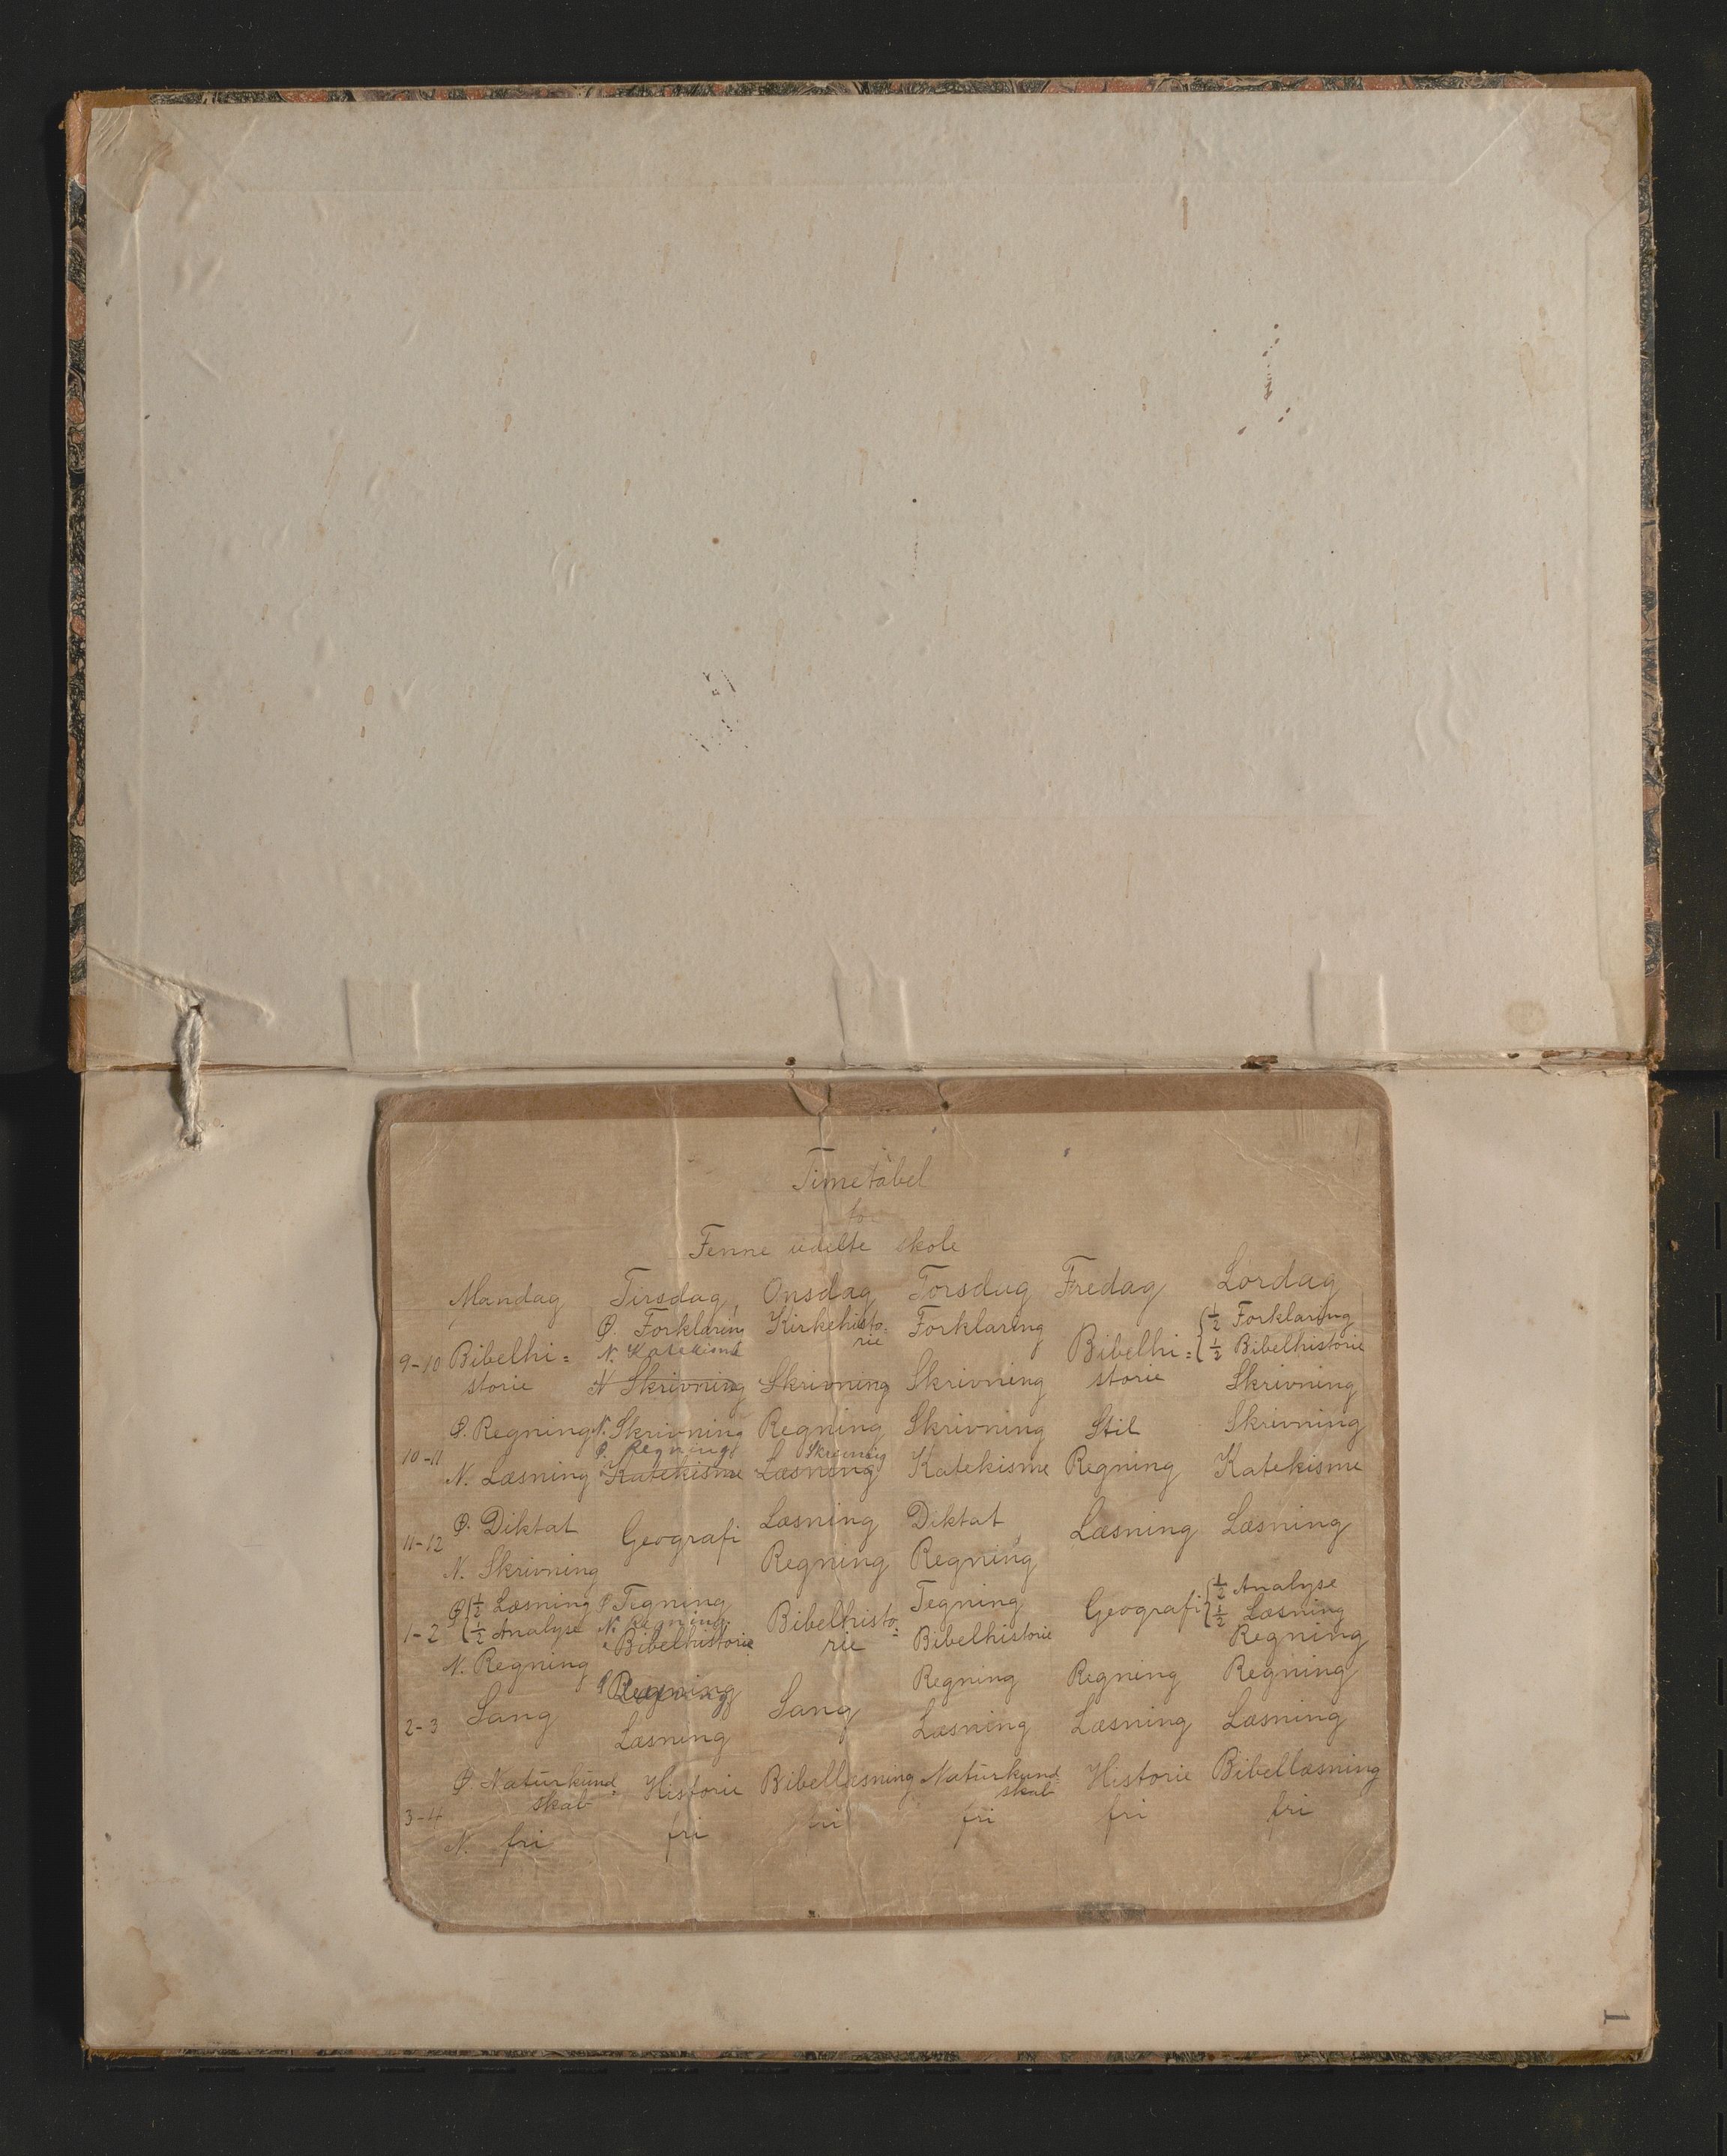 Timetabel
for
Fenne udelte skole
Mandag Tirsdag Onsdag Torsdag Fredag Lørdag
Ø. Forklaring Kirkehisto= Forklaring ½ Forklaring
9-10 Bibelhi= N. Katekisme rie Bibelhi= ½ Bibelhistorie
storie N Skrivning Skrivning Skrivning storie Skrivning
Ø. Regning N. Skrivning Regning Skrivning Stil Skrivning
10-11 Ø. Regning Skrivning
N. Læsning Katekisme Læsning Katekisme Regning Katekisme
Ø. Diktat Læsning Diktat
11-12 Geografi Læsning Læsning
N. Skrivning Regning Regning
Ø ½ Læsning Ø Tegning Tegning ½ Analyse
1-2 ½ Analyse N. Regning Bibelhisto= Geografi ½ Læsning
Bibelhistorie rie Bibelhistorie Regning
N. Regning Regning Regning Regning Regning
2-3 Sang Sang
Læsning Læsning Læsning Læsning
Ø. Naturkund= Historie Bibellæsning Naturkund= Historie Bibellæsning
3-4 skab skab
N. fri fri fri fri fri fri
1